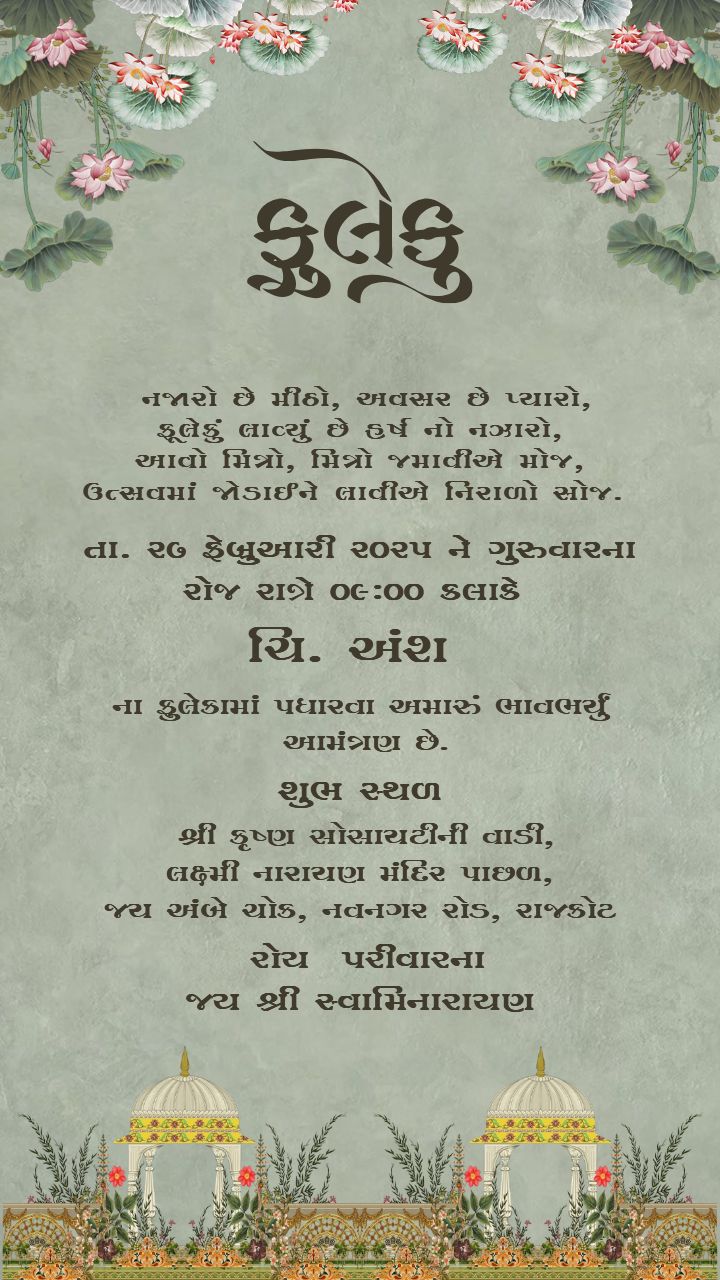 ફુલેકુ
નજારો છે મીઠો, અવસર છે પ્યારો,
ફૂલેકું લાવ્યું છે હર્ષ નો નઝારો,
આવો મિત્રો, મિત્રો જમાવીએ મોજ,
ઉત્સવમાં જોડાઈને લાવીએ નિરાળો સોજ.
તા. ૨૭ ફેબ્રુઆરી ૨૦૨૫ ને ગુરુવારના
રોજ રાત્રે ૦૯:૦૦ કલાકે
ચિ. અંશ
ના ફુલેકામાં પધારવા અમારું ભાવભર્યું
આમંત્રણ છે.
શુભ સ્થળ
શ્રી કૃષ્ણ સોસાયટીની વાડી,
લક્ષ્મી નારાયણ મંદિર પાછળ,
જય અંબે ચોક, નવનગર રોડ, રાજકોટ
રોય પરીવારના
જય શ્રી સ્વામિનારાયણ